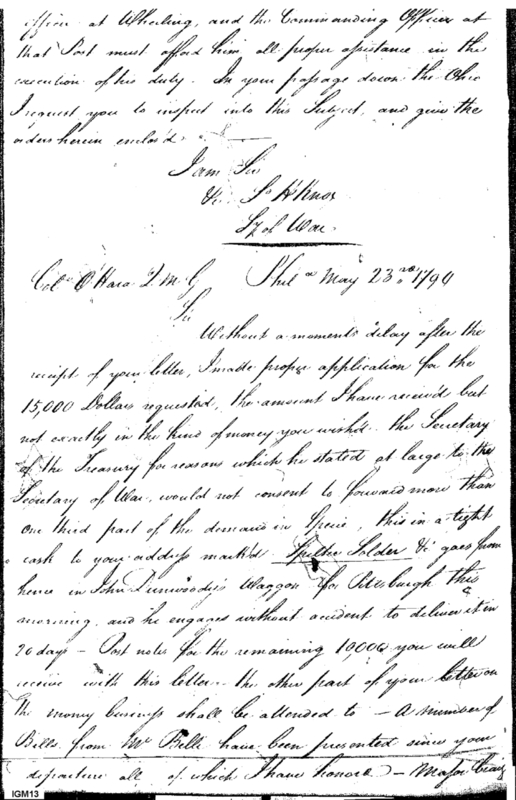 officer at Wheeling, and the Commanding Officer at
that Post must afford him all proper assistance in the
execution of his duty. In your passage down the Ohio
I request you to inspect into this Subject, and give the
orders herein enclos'd.
I am Sir
&c. H Knox
Sy of War.
Colo. O'Hara Q. M. G. Phila May 23rd 1794
Sir
Without a moments delay after the
receipt of your letter, I made proper application for the
15,000 Dollars requested, the amount I have receiv'd but
not exactly in the kind of money you wish'd. the Secretary
of the Treasury for reasons which he stated at large to the
Secretary of War, would not consent to forward more than
one third part of the demand in Specie, this in a tight
cask to your address mark'd Spelter Solder &c goes from
hence in John Dunwoody's Waggon for Pittsburgh this
morning, and he engages without accident to deliver it in
20 days – Post notes for the remaining 10,000 you will
receive with this letter. the other part of your letter on
the money business shall be attended to – A number of
Bills from Mr Belli have been presented since your
departure all of which I have honor'd – Major Craig
IGM13